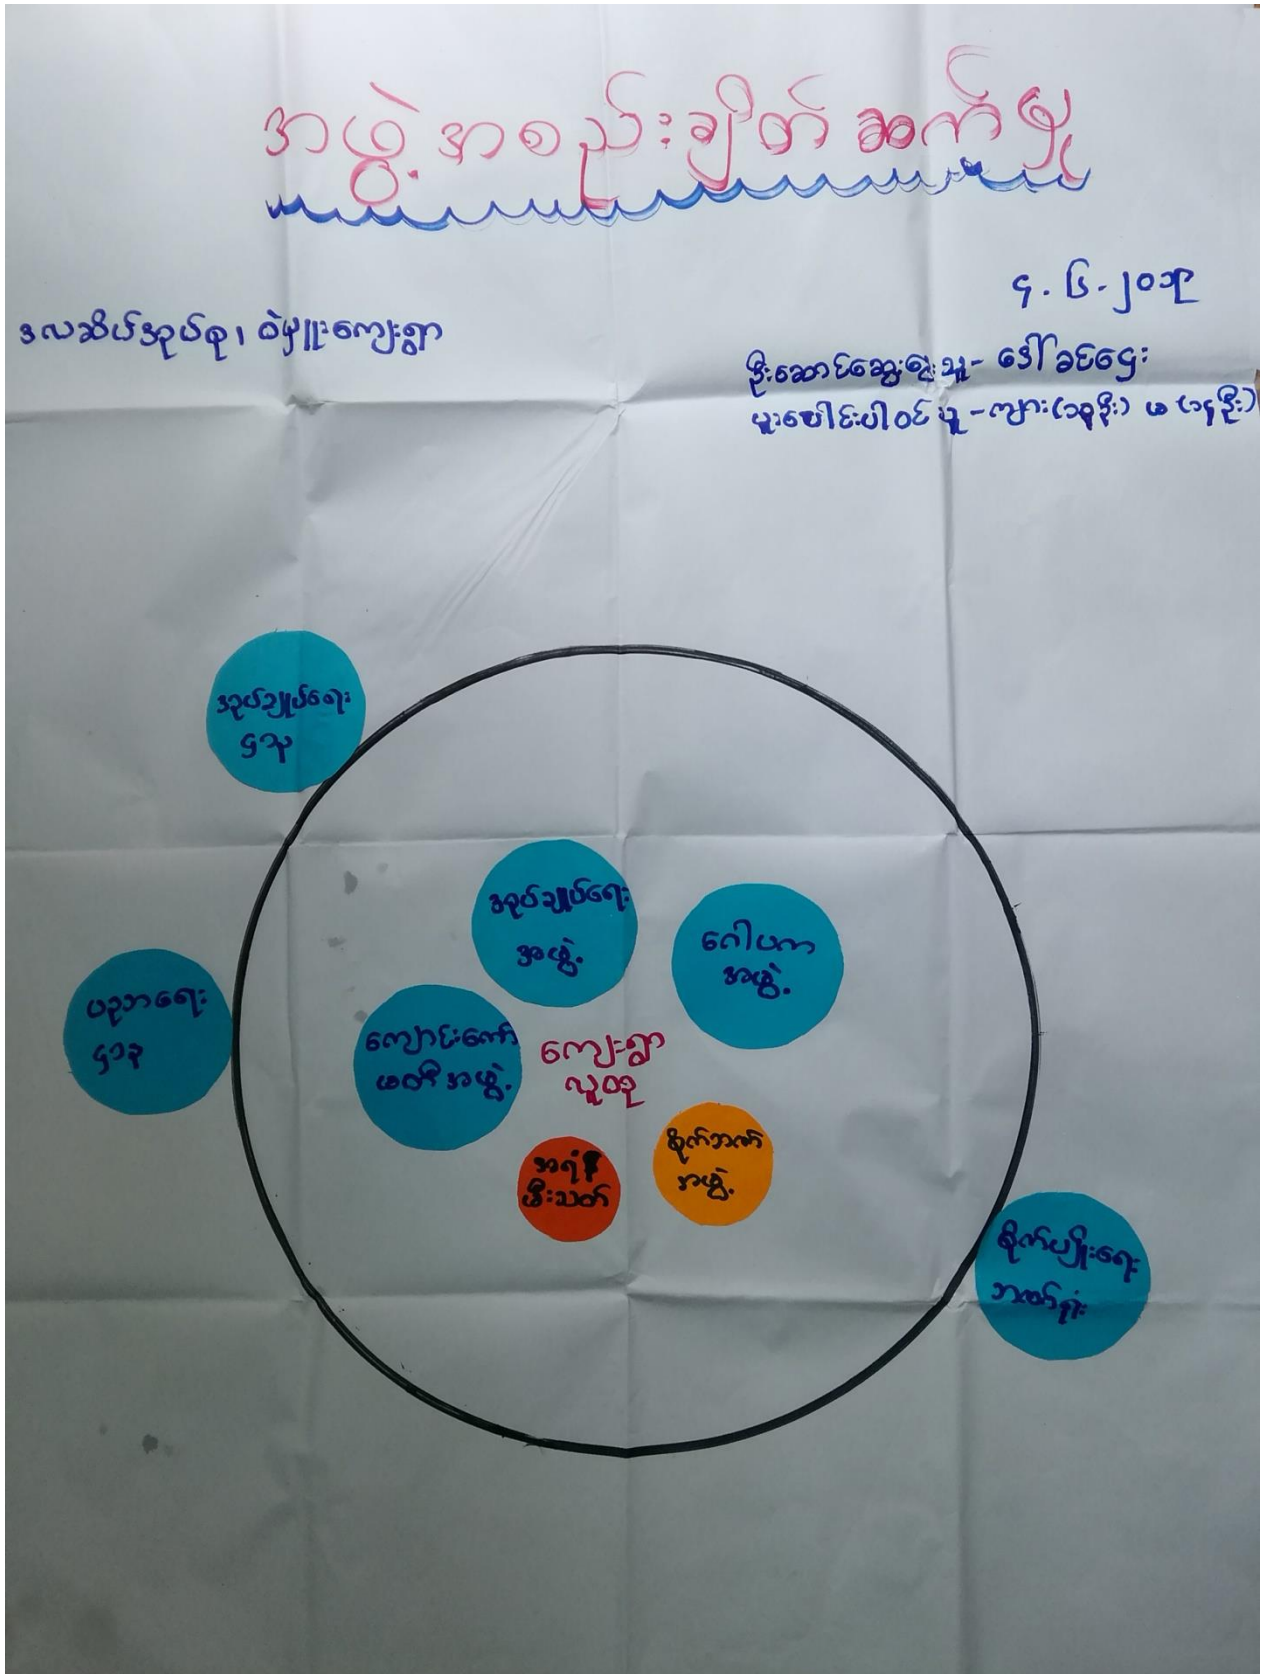 အဖွဲ့အစည်းချိတ်ဆက်မှု
၄.၆.၂၀၁၉
ဒလဆိပ်အုပ်စု၊ ဝဲမှူးကျေးရွာ
ဦးဆောင်ဆွေးနွေးသူ - ဒေါ်ခင်ဌေး
ပူးပေါင်းပါဝင်သူ - ကျား မ
အုပ်ချုပ်ရေး
ဌာန
အုပ်ချုပ်ရေး
အဖွဲ့
ဂေါပက
အဖွဲ့
ပညာရေး
ဌာန
ကျောင်းကော်
မတီအဖွဲ့
ကျေးရွာ
လူထု
အရံ
မီးသတ်
စိုက်ဘဏ်
အဖွဲ့
စိုက်ပျိုးရေး
ဘဏ်